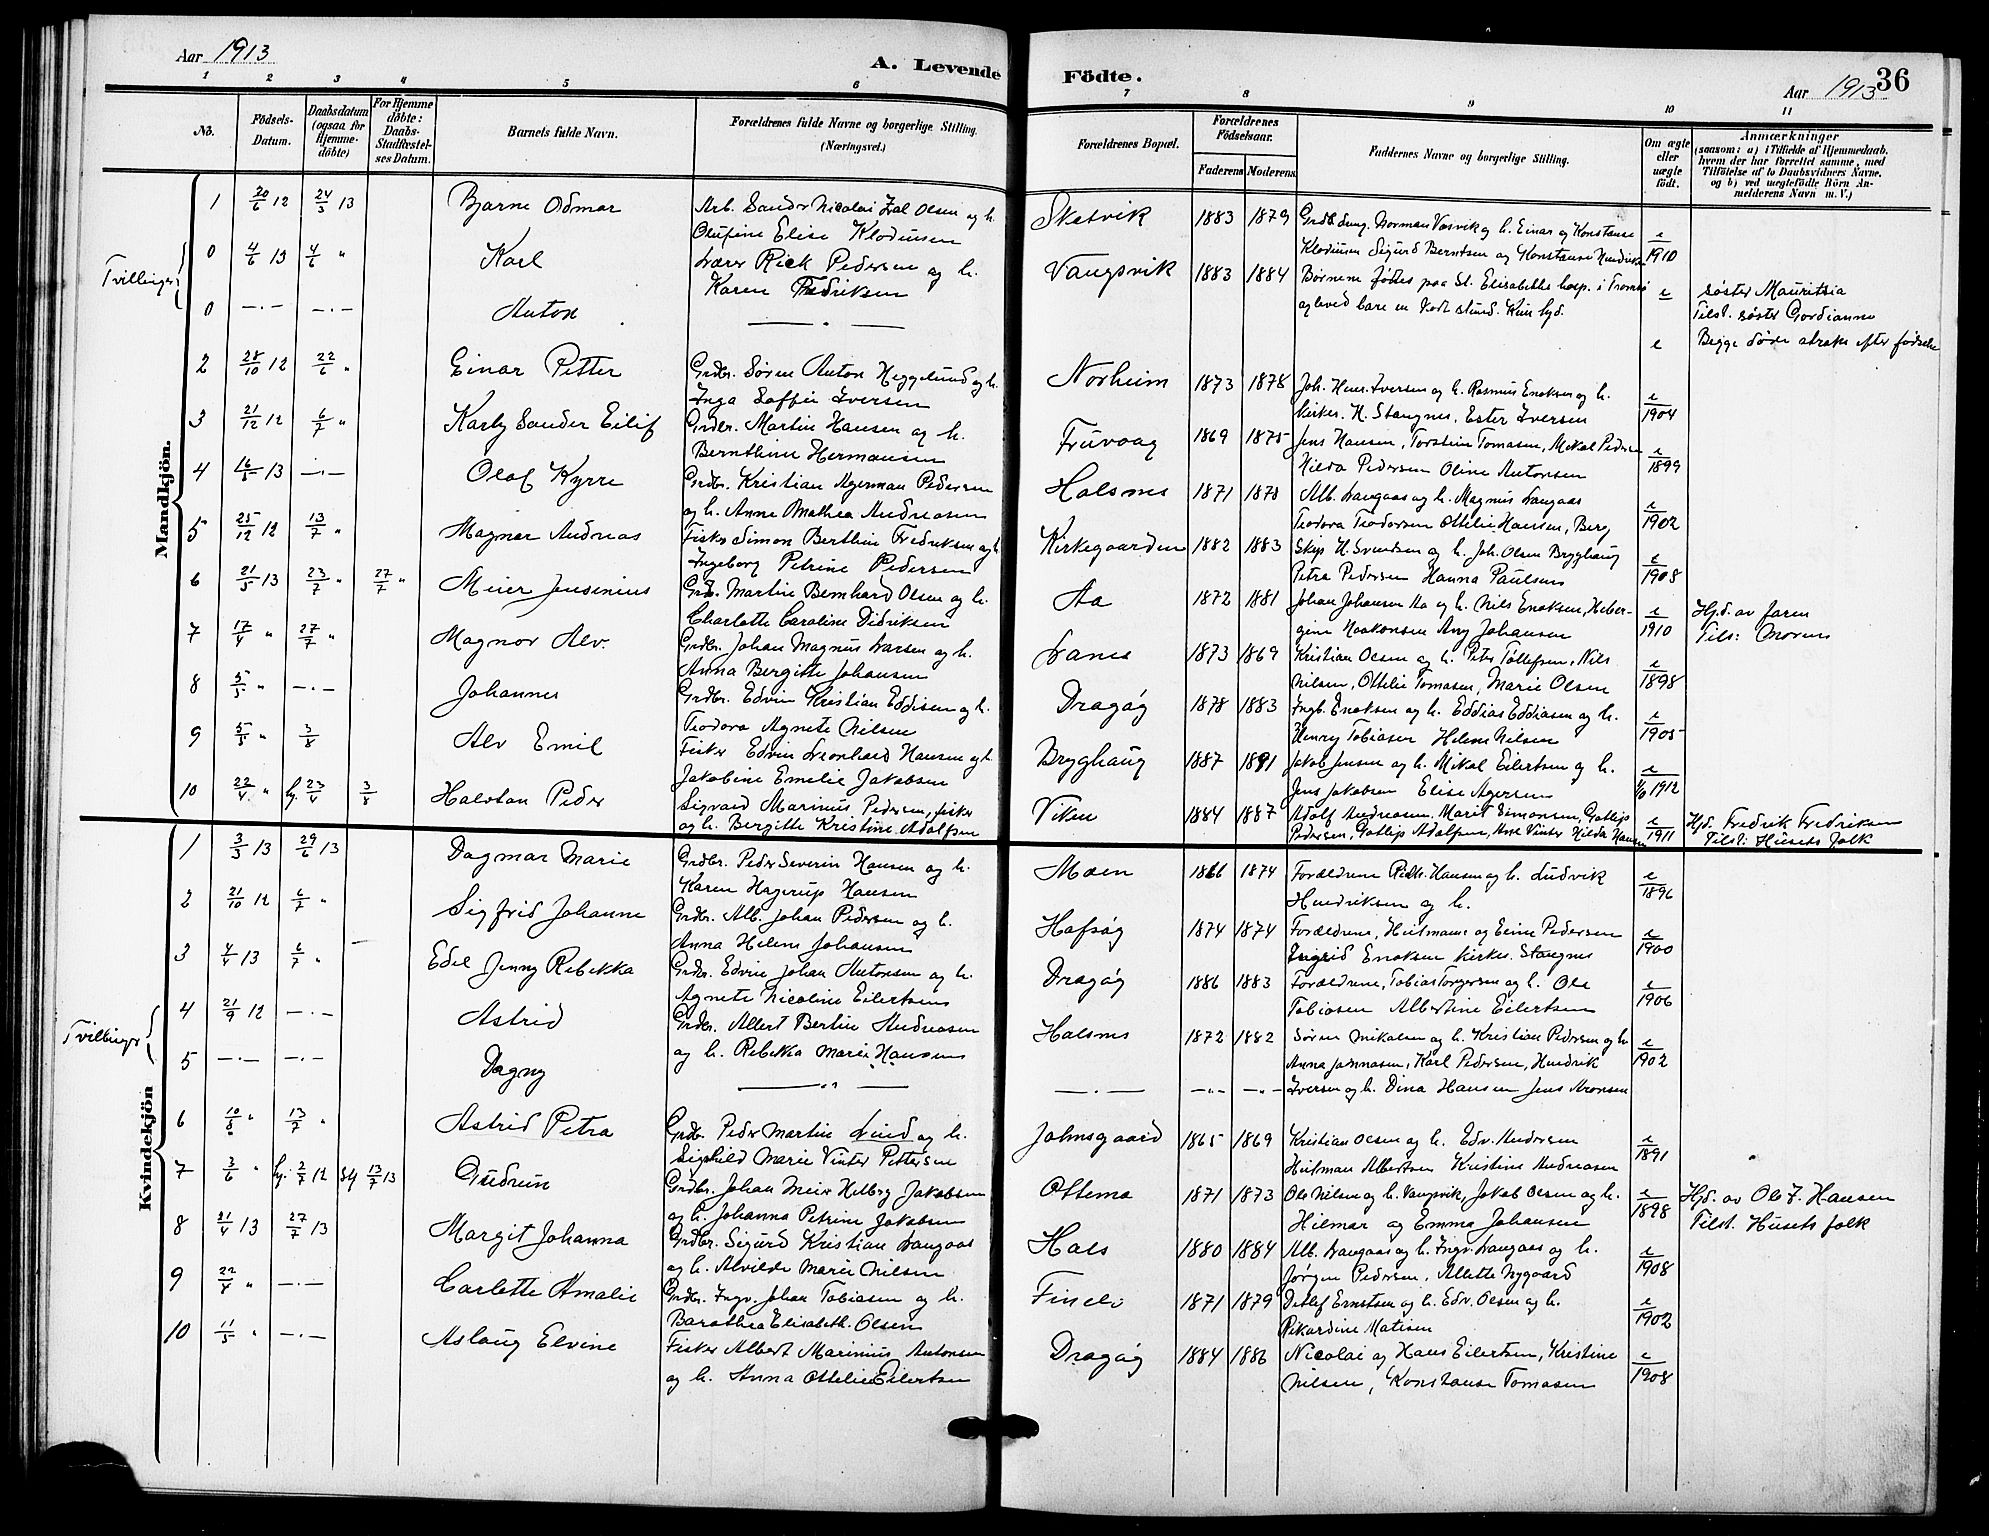 Aar 1913
A. Levende Födte.
Aar 1913 36
1 2 3 4 5 6 7 8 9 10 11
No.
Födsels-Datum.
Daabsdatum (ogsaa for Hjemme-döbte)
For Hjemme döbte: Daabs-Stadfæstel-ses Datum.
Barnets fulde Navn.
Forældrenes fulde Navne og borgerlige Stilling.
(Næringsvei.)
Forældrenes Bopæl.
Forældrenes Födselsaar.
Faderens Moderens
Faddernes Navne og borgerlige Stilling.
Om ægte eller uægte födt.
Anmærkninger
(saasom: a) i Tilfælde af Hjemmedaab.
hvem der har forrettet samme, med
Tilföielse af to Daabsvidners Navne.
og b) ved uægtefödte Börn An-
melderens Navn m. V.)
Mandkjön.
1 20/6 12 24/3 13 Bjarne Odmar Arb. Sander Nicolai Zal Olsen og h. Skatvik 1883 1879 Konstanse
Olufine Elise Klodiusen Klodiusen Sigurd Berntsen og Konstanse e/1910
Tvillinger
0 4/6 13 4/6 " Karl Lærer Rick Pedersen og h. Vangsvik 1883 1884 Børnene fødtes paa St. Elisabeths hosp. i Tromsø e søster Mauritzia
Karen Fredriksen og leved bare en kort stund. Tilst. søster Gordianne
0 —.— —.— Anton — " — e Begge døde straks efter fødselen
2 28/10 12 22/6 " Einar Petter Grdbr. Søren Anton Heggelund og h. Norheim 1873 1878 Joh. Henr. Iversen og h. Rasmus Enoksen og h.
Inga Soffie Iversen Kirkes. H. Stangnes, Ester Iversen e/1904
3 21/12 12 6/7 " Karly Sander Eilif Grdbr. Martin Hansen og h. Fruvaag 1869 1875 Jens Hansen, Torstein Tomasen, Mikal Pedersen
Bernthine Hermansen Hilda Pedersen Oline Antonsen e/1899
4 16/5 13 —.— Olaf Kyrre Grdbr. Kristian Agerman Pedersen Halsnes 1871 1873 Alb. Langaas og h. Magnus Langaas
og h. Anne Mathea Andreasen Teodora Teodorsen Ottilie Hansen, Berg e/1902
5 25/12 12 13/7 " Magnar Andreas Fisker Simon Berthin Fredriksen og h. Kirkegaarden 1882 1883 Skip. H. Svendsen og h. Joh. Olsen Brygghaug
Ingeborg Petrine Pedersen Petra Pedersen Hanna Paulsens e/1908
6 21/5 13 23/7 " 27/7 " Meier Jensenius Grdb. Martin Bernhard Olsen og h. Aa 1872 1881 Johan Johansen Aa og h. Nils Enoksen, Heber- Hjd. av faren
Charlotte Caroline Didriksen gine Haakonsen Any Johansen e/1910 Tils: Moren
7 17/4 " 27/7 " Magnor Alv. Grdbr. Johan Magnus Larsen og h. Lanes 1873 1869 Kristian Olsen og h. Peter Tollefsen, Nils
Anna Bergitte Johansen Nilsen, Ottilie Tomasen, Marie Olsen e/1898
8 5/5 " —.— Johannes Grdbr. Edvin Kristian Eddisen og h. Dragøy 1878 1883 Ingb. Enoksen og h. Eddias Eddiasen og h.
Teodora Agnete Nilsen Henry Tobiasen Helene Nilsen e/1905
9 5/5 " 3/8 Alv Emil Fisker Edvin Leonhard Hansen og h. Brygghaug 1887 1891 Jakob Jensen og h. Mikal Eilertsen og h.
Jakobine Emelie Jakobsen Jens Jakobsen Elise Agersen 1912
10 22/4 " hj. 23/4 3/8 Halvdan Peder Sigvard Marinius Pedersen, fisker Viken 1884 1887 Adolf Andreasen, Marit Simonsen, Gottlip Hjd. Fredrik Fredriksen
og h. Bergitte Kristine Adolfsen Pedersen, Gotlip Adolfsen, Arne Vinter Hilda Hansen e/1911 Tilst: Husets folk
Kvindekjön
1 3/3 13 29/6 13 Dagmar Marie Grdbr. Peder Severin Hansen og h. Moen 1866 1874 Forældrene Hansen og h. Ludvik
Karen Hagerup Hansen Hendriksen og h. e/1896
2 21/10 12 6/7 " Sigfrid Johanne Grdbr. Alb. Johan Pedersen og h. Hafsøy 1874 1874 Forældrene, Hilmann og Eine Pedersen
Anna Helene Johansen Ingrid Enoksen kirkes. Stangnes e/1900
3 4/4 13 6/7 " Edel Jenny Rebekka Grdbr. Edvin Johan Antonsen og h. Dragøy 1886 1883 Forældrene, Tobias Torgersen og h. Ole
Agnete Nicoline Eilertsen Tobiasen Albertine Eilertsen e/1906
Tvillinger
4 21/9 12 —.— Astrid Grdbr. Albert Bertin Andreasen Halsnes 1872 1882 Søren Mikalsen og h. Kristian Pedersen og h
og h. Rebekka Marie Hansen Anna Johnasen, Karl Pedersen, Hendrik e/1902
5 —.— —.— Dagny — " — —.— —"— —"— Iversen og h. Dina Hansen Jens Aronsen
6 10/8 " 13/7 " Astrid Petra Grdb. Peder Martin Lind og h. Johnsgaard 1865 1869 Kristian Olsen og h. Edv. Andersen
Sighild Marie Vinter Pettersen Hilman Albertsen Kristine Andreasen e/1891
7 3/6 " hj. 2/7 12 Sty 13/7 13 Gudrun Grdbr. Johan Meier Helberg Jakobsen Ottemo 1871 1873 Ole Nilsen og h. Vangsvik, Jakob Olsen og h. Hjd. av Ole F. Hansen
og h. Johanna Petrine Jakobsen Hilmar og Emma Johansen e/1898 Tilst. Husets folk
8 21/4 13 27/7 13 Margit Johanna Grdbr. Sigurd Kristian Langaas Hals 1880 1884 Alb. Langaas og h. Ingv. Langaas og h.
og h. Alvilde Marie Nilsen Jørgen Pedersen, Allette Nygaard e/1908
9 22/4 " —.— Carlotte Amalie Grdbr. Ingv. Johan Tobiasen og h. 1871 1879 Detlef Ernstsen og h. Edv. Olsen og h.
Barathea Elisabeth Olsen Rikardine Matisen e/1902
10 11/5 " —.— Aslaug Elvine Fisker Albert Marinius Antonsen Dragøy 1884 1886 Nicolai og Hans Eilertsen, Kristine
og h. Anna Ottelie Eilertsen Nilsen, Konstanse Tomasen e/1908